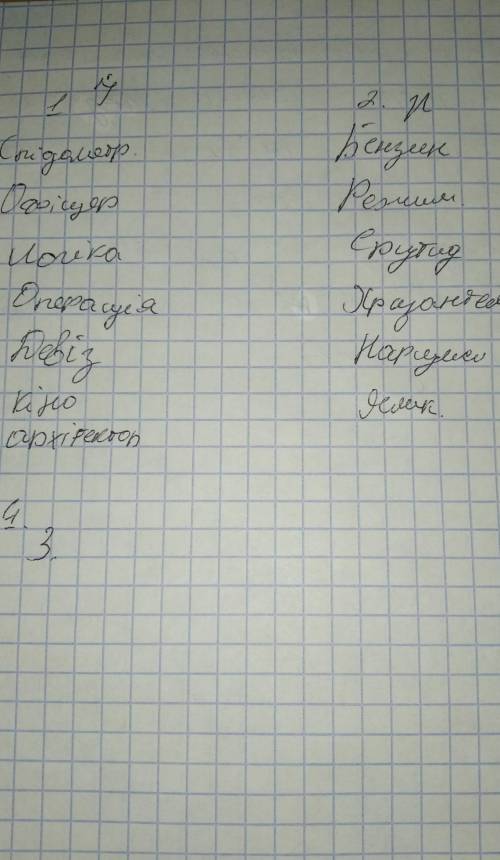 1 ї
2. и
Спідометр.
Офіцер
Логіка
Операція
Девіз
кіно
архітектор
Бензин
Режим.
Ерудид
Хризантем
Нарцис
Ялик.
4.
3.